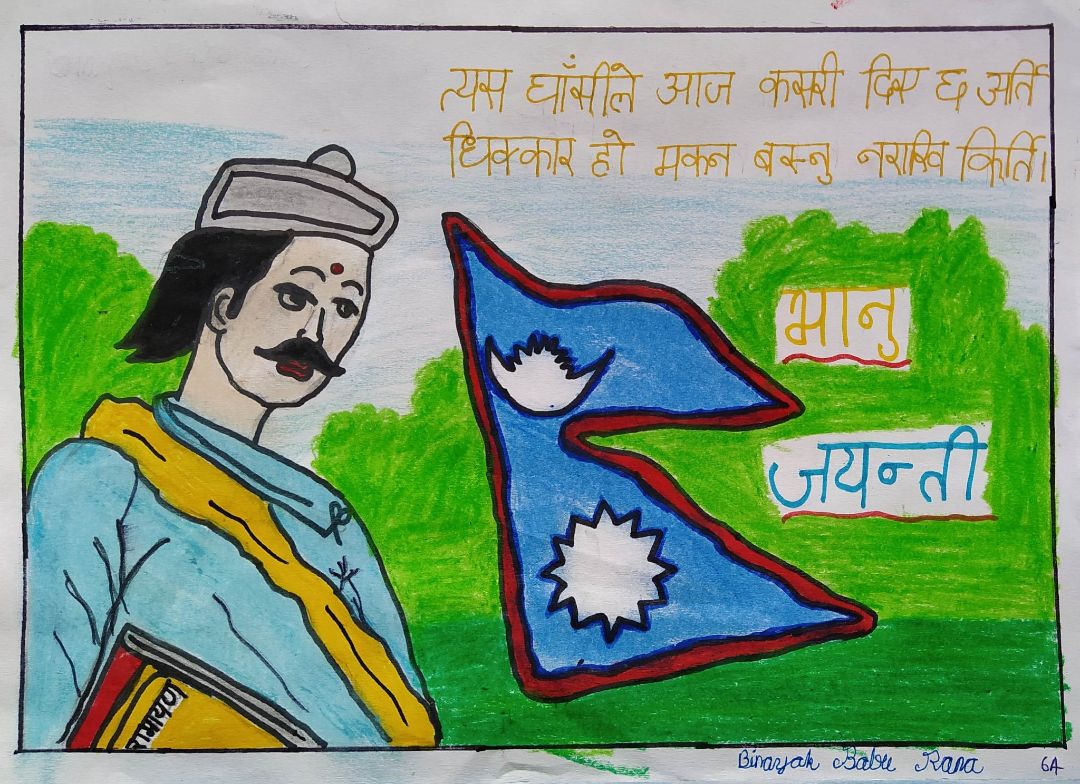 त्यस घाँसीले आज कसरी दिए छ अर्ति
धिक्कार हो मकन बस्नु नराखि किर्ति।
भानु
जयन्ती
रामायण
Binayak Babu Rana 6A